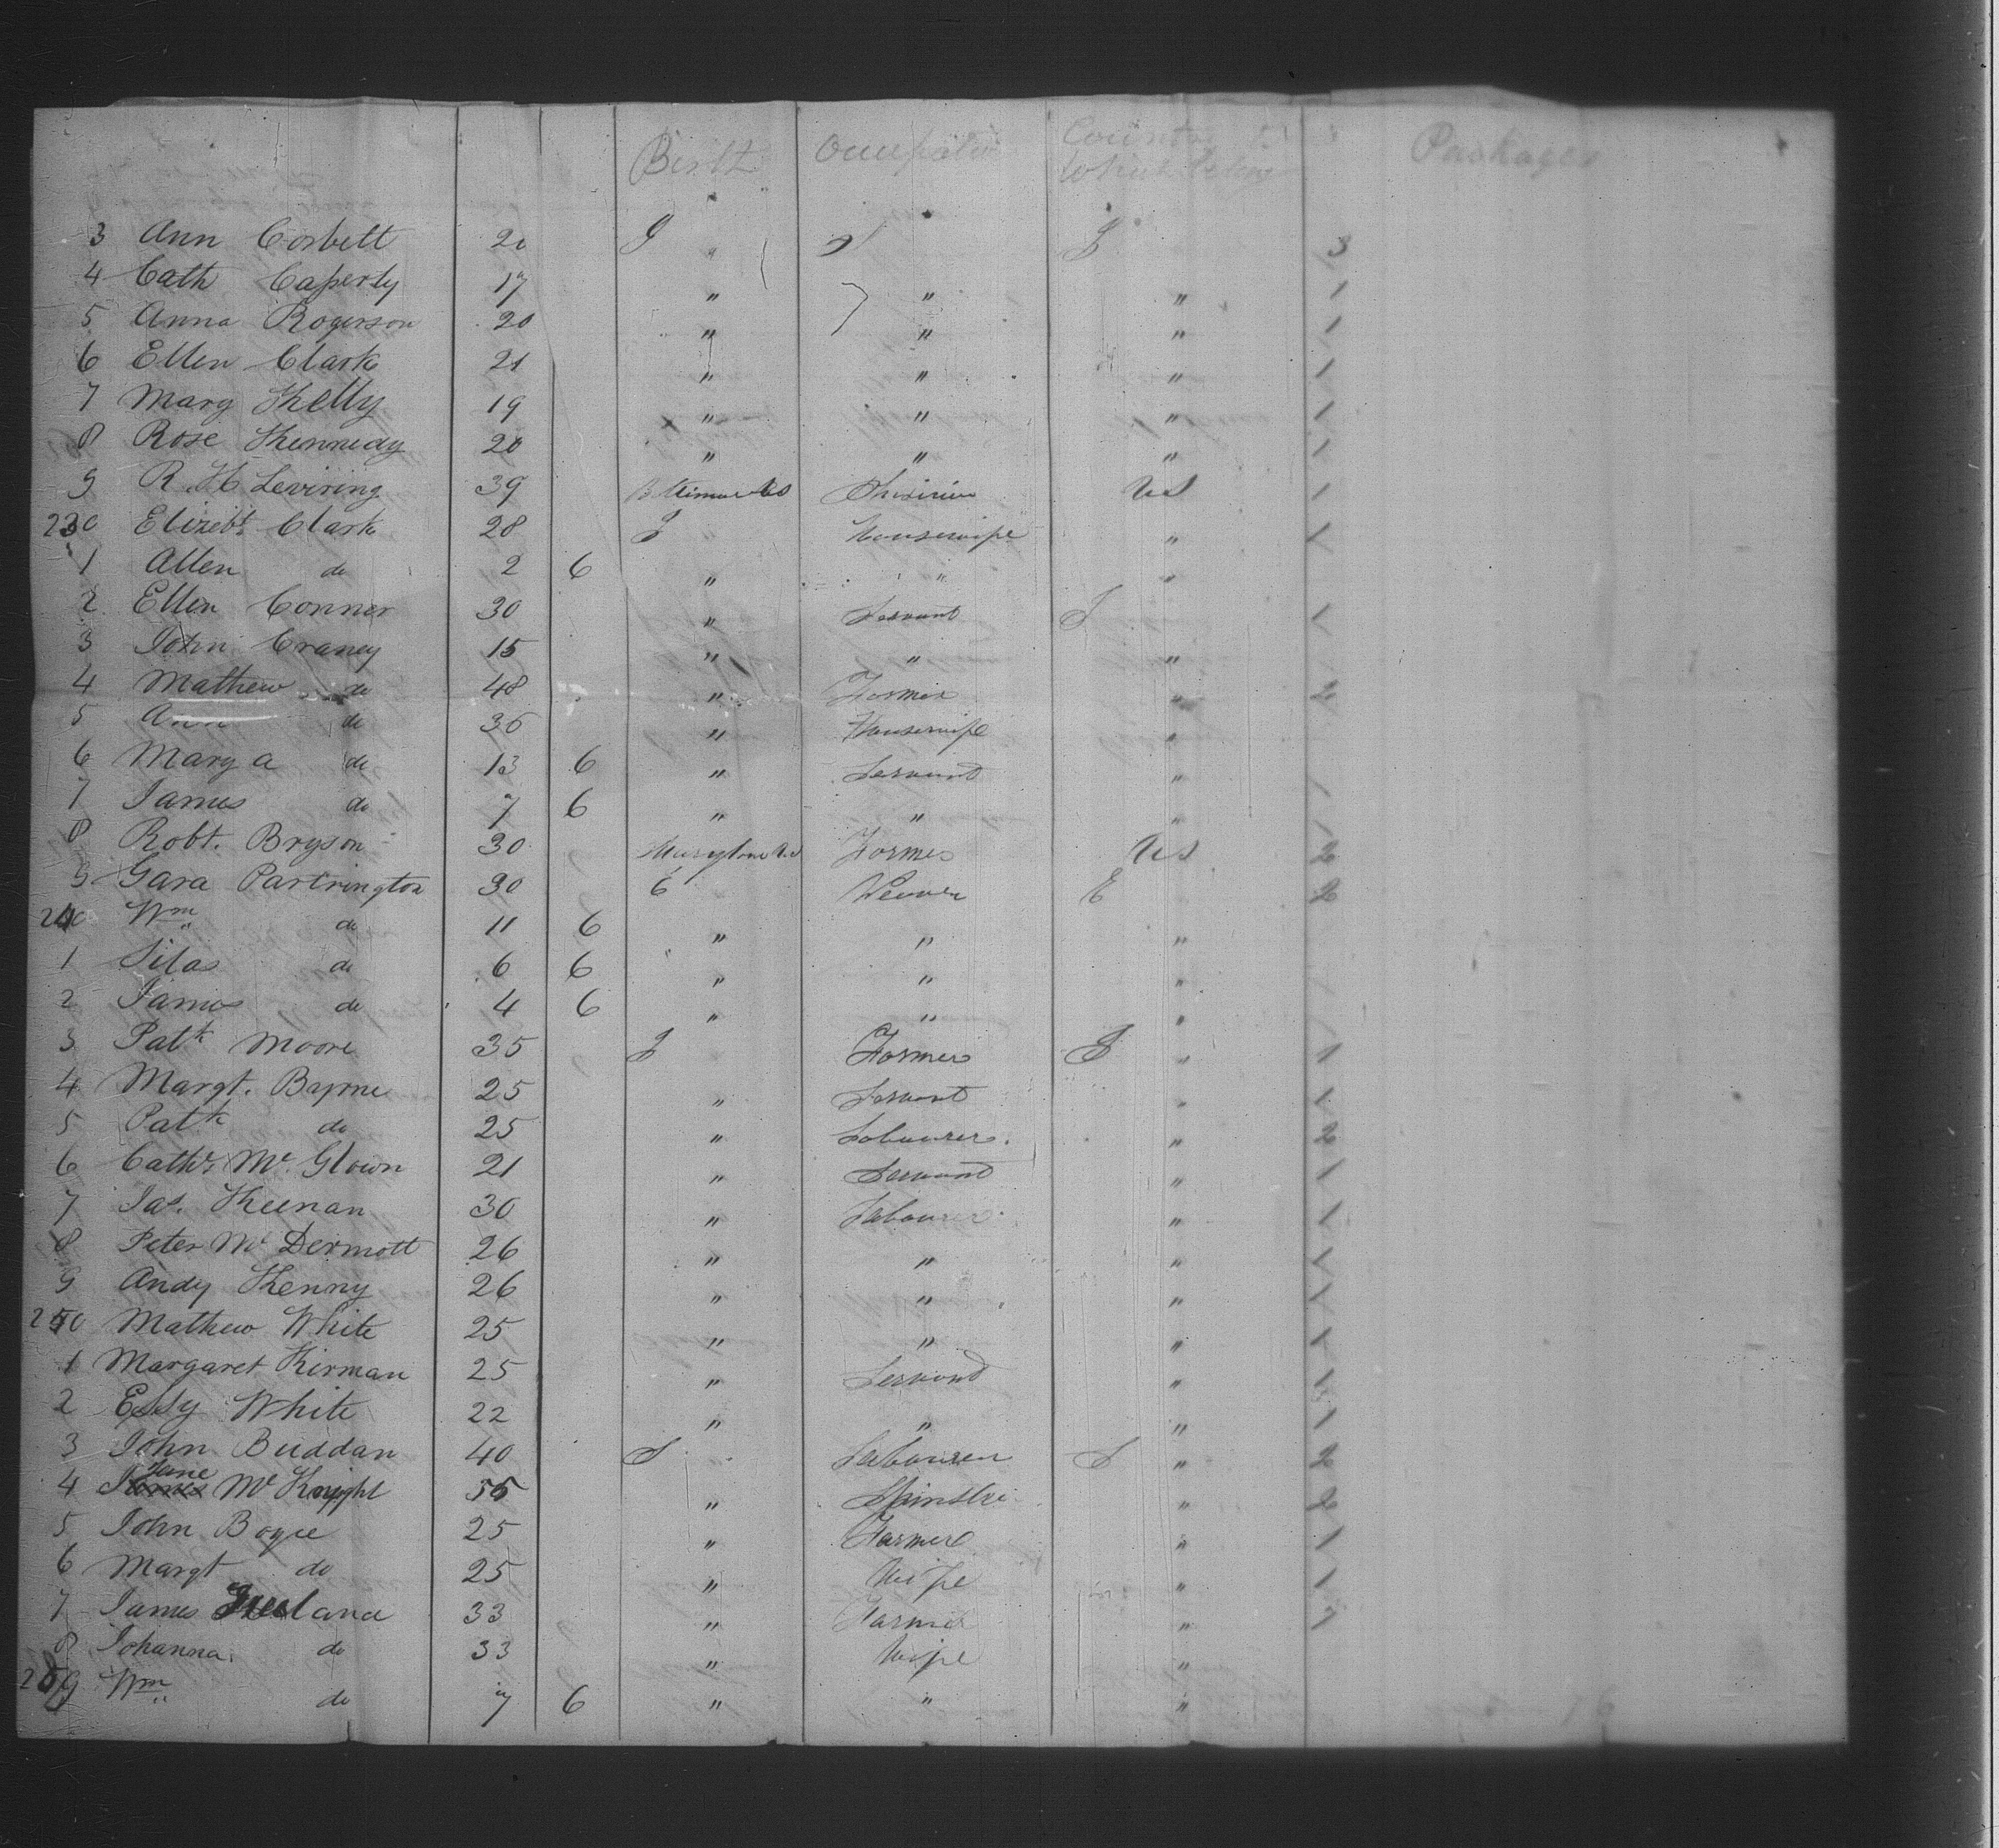 Birth Occupation Country Packages
which belong
3 Ann Corbett 20 I 3
4 Cath Caferty 17 " " " 1
5 Anna Rogerson 20 " " " 1
6 Ellen Clark 21 " " " 1
7 Mary Kelly 19 " " " 1
8 Rose Kennedy 20 " " " 1
9 R. H Leviring 39 US 1
230 Elizebt Clark 28 I Housewife " 1
1 Allen do 2 6 " " "
2 Ellen Conner 30 " Servant I 1
3 John Craney 15 " " "
4 Mathew do 48 " Farmer " 2
5 Ann do 36 " Housewife "
6 Mary a do 13 6 " Servant "
7 James do 7 6 " " " 1
8 Robt. Bryson 30 Farmer US 2
9 Gara Partrington 30 E Weaver E 2
240 Wm do 11 6 " " "
1 Silas do 6 6 " " "
2 James do 4 6 " " "
3 Patk Moore 35 I Farmer I " 1
4 Margt. Byrne 25 " Servant " 1
5 Patk do 25 " Labourer " 2
6 Cathr Mc Glown 21 " Servant " 1
7 Jas. Keenan 30 " Labourer " 1
8 Peter Mc Dermott 26 " " " 1
9 Andy Kenny 26 " " " 1
250 Mathew White 25 " " " 1
1 Margaret Kirman 25 " Servant " 1
2 Essy White 22 " " " 1
3 John Buddan 40 S Labourer S " 2
4 Jane Mc Knight 55 " Spinster " 2
5 John Boyce 25 " Farmer " 1
6 Margt do 25 " Wife " 1
7 James Freeland 33 " Farmer " 1
8 Johanna do 33 " Wife "
259 Wm do 7 6 " " "